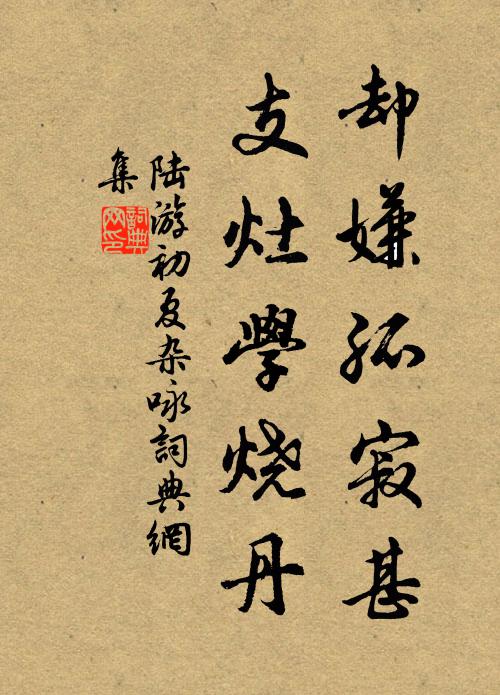 却嫌孤寂甚
支灶學烧丹
陆游初夏杂咏詞典網
集
詞典
网印